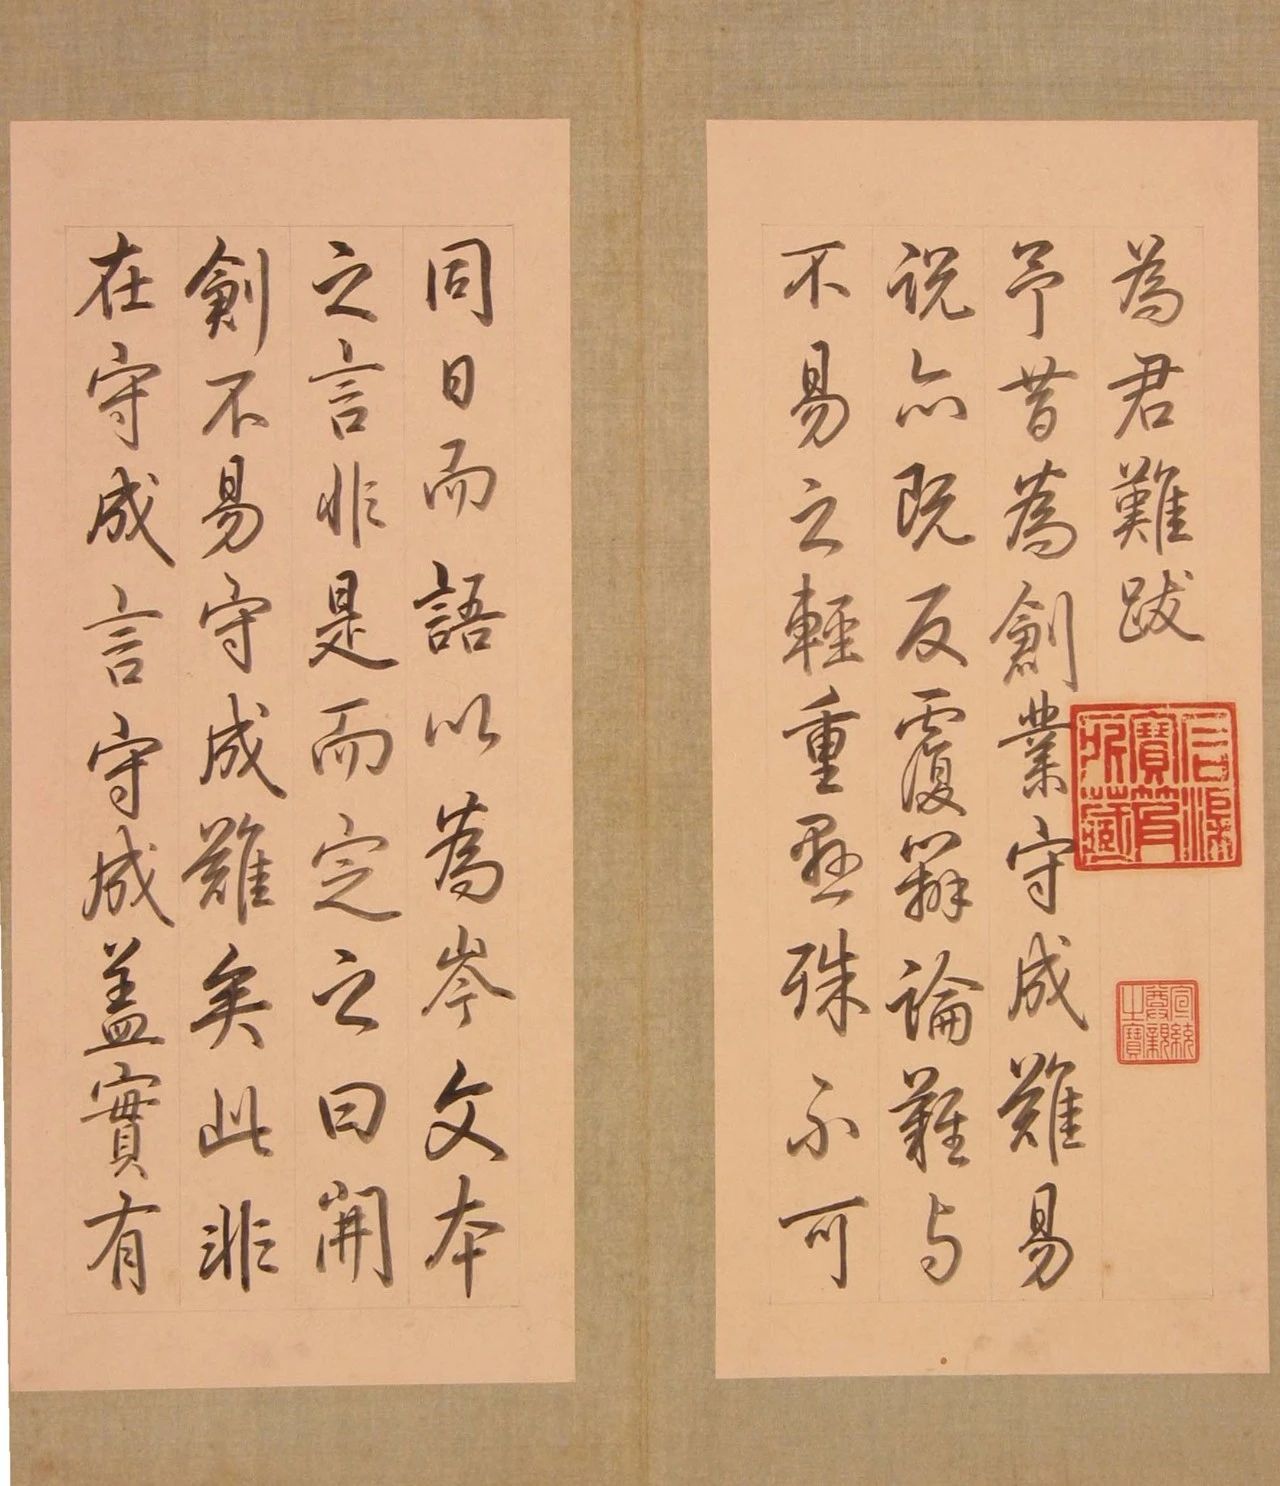 為君難跋
予昔為創業守成難易
說亦既反覆辯論難与
不易之輕重懸殊不可
同日而語以為岑文本
之言非是而定之曰開
創不易守成難矣此非
在守成言守成蓋實有
石渠寶笈所藏
宣統尊親之寶